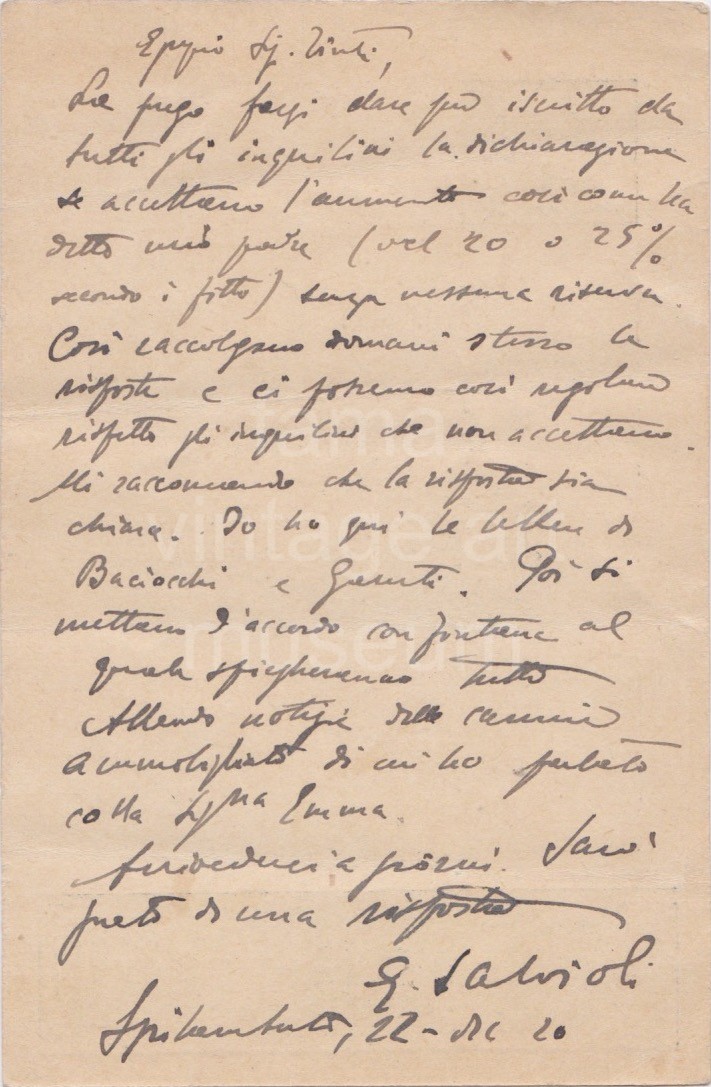 Egregio Sig. Tinti,
La prego farsi dare per iscritto da
tutti gli inquilini la dichiarazione
se accettano l'aumento così come ha
detto mio padre (del 20 o 25%
secondo i fitti) senza nessuna riserva.
Così raccolgano domani stesso le
risposte e ci potremo così regolare
rispetto gli inquilini che non accettano.
Mi raccomando che la risposta sia
chiara. Io ho qui le lettere di
Baciocchi e. Poi si
mettano d'accordo con Fontana al
quale spiegheranno tutto
Attendo notizie della camera
ammobigliata di cui ho parlato
colla Sigra Emma.
Arrivederci a giorni. Sarò
grato di una risposta
G. Salvioli
Spilamberto, 22 - dic 20
tama
vintage art
museum